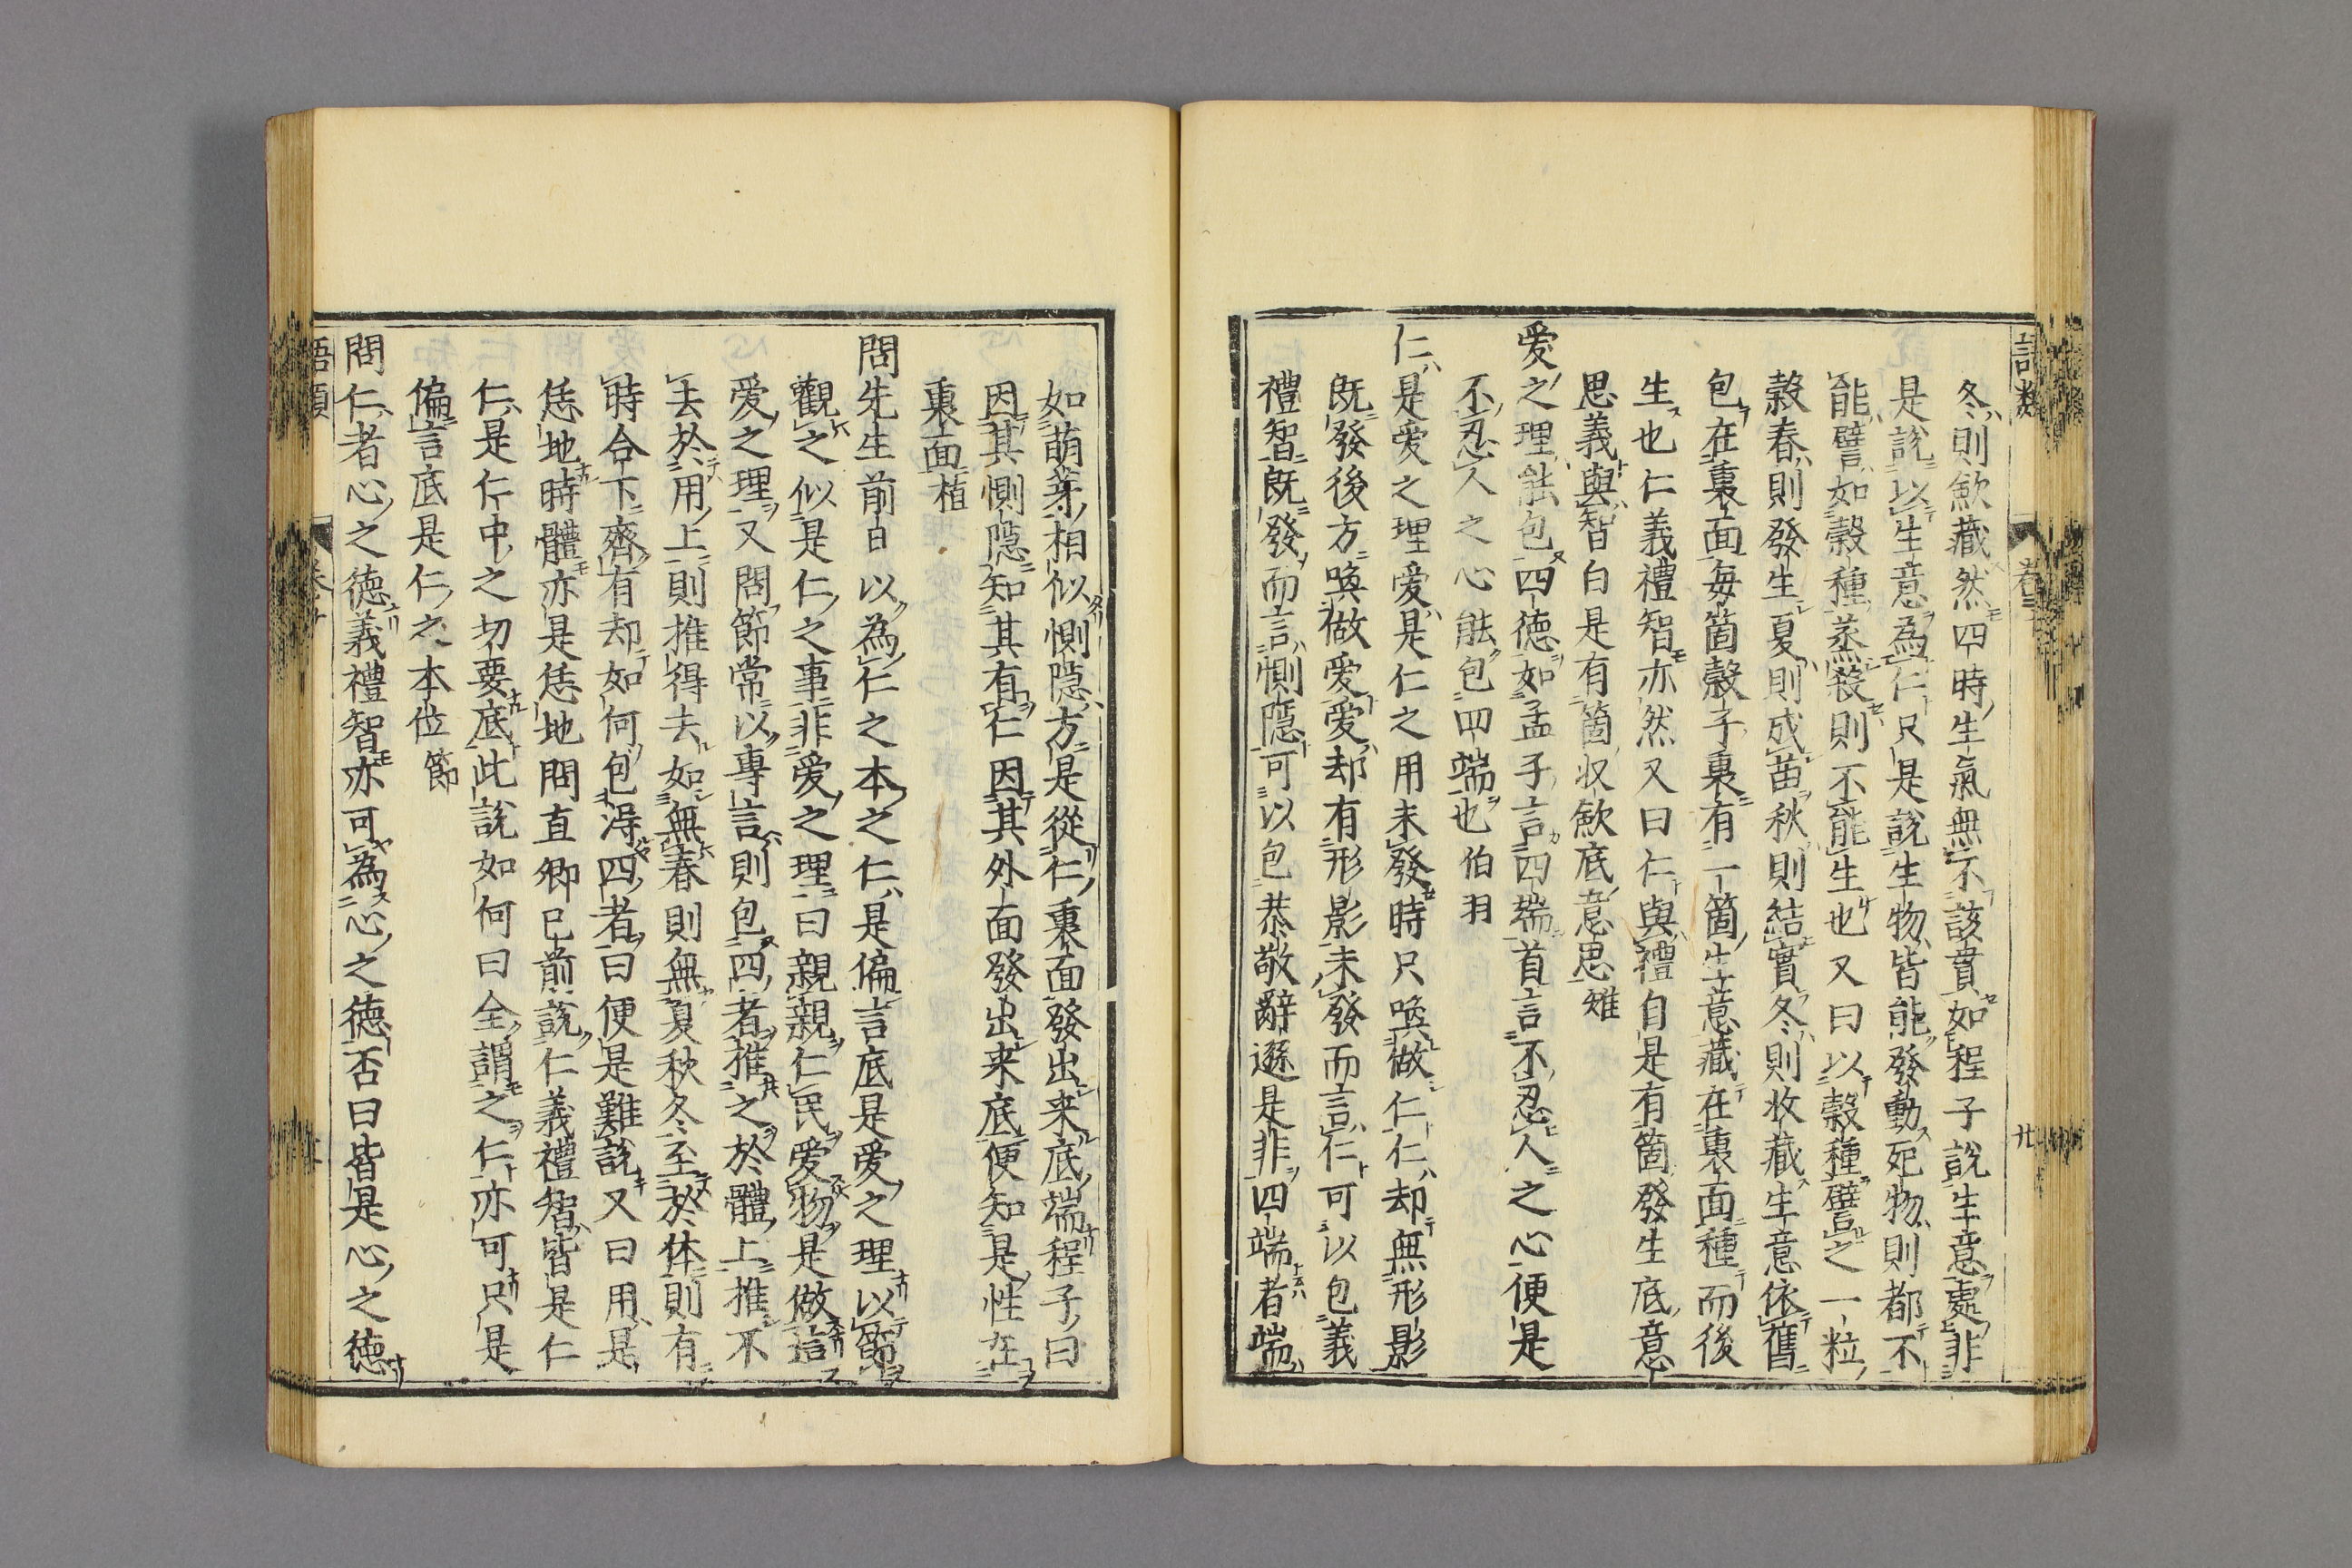 冬則歛藏然四時生氣無不該貫如程子說生意處非
是說以生意為仁只是說生物皆能發動死物則都不
能譬如穀種蒸殺則不能生也又曰以穀種譬之一粒
穀春則發生夏則成苗秋則結實冬則收藏生意依舊
包在裏面每箇穀子裏有一箇生意藏在裏面種而後
生也仁義禮智亦然又曰仁與禮自是有箇發生底意
思義與智自是有箇収歛底意思雉
愛之理能包四德如孟子言四端首言不忍人之心便是
不忍人之心能包四端也伯羽
仁是愛之理愛是仁之用未發時只喚做仁仁却無形影
既發後方喚做愛愛却有形影未發而言仁可以包義
禮智既發而言惻隱可以包恭敬辭遜是非四端者端
如萌芽相似惻隱方是從仁裏面發出来底端程子曰
因其惻隱知其有仁因其外面發出来底便知是性在
裏面植
問先生前日以為仁之本之仁是偏言底是愛之理以節
觀之似是仁之事非愛之理曰親親仁民愛物是做這
愛之理又問節常以專言則包四者推之於體上推不
去於用上則推得去如無春則無夏秋冬至於体則有
時合下齊有却如何包得四者曰便是難說又曰用是
恁地時體亦是恁地問直卿已前說仁義禮智皆是仁
仁是仁中之切要底此說如何曰全謂之仁亦可只是
偏言底是仁之本位節
問仁者心之德義禮智亦可為心之德否曰皆是心之德